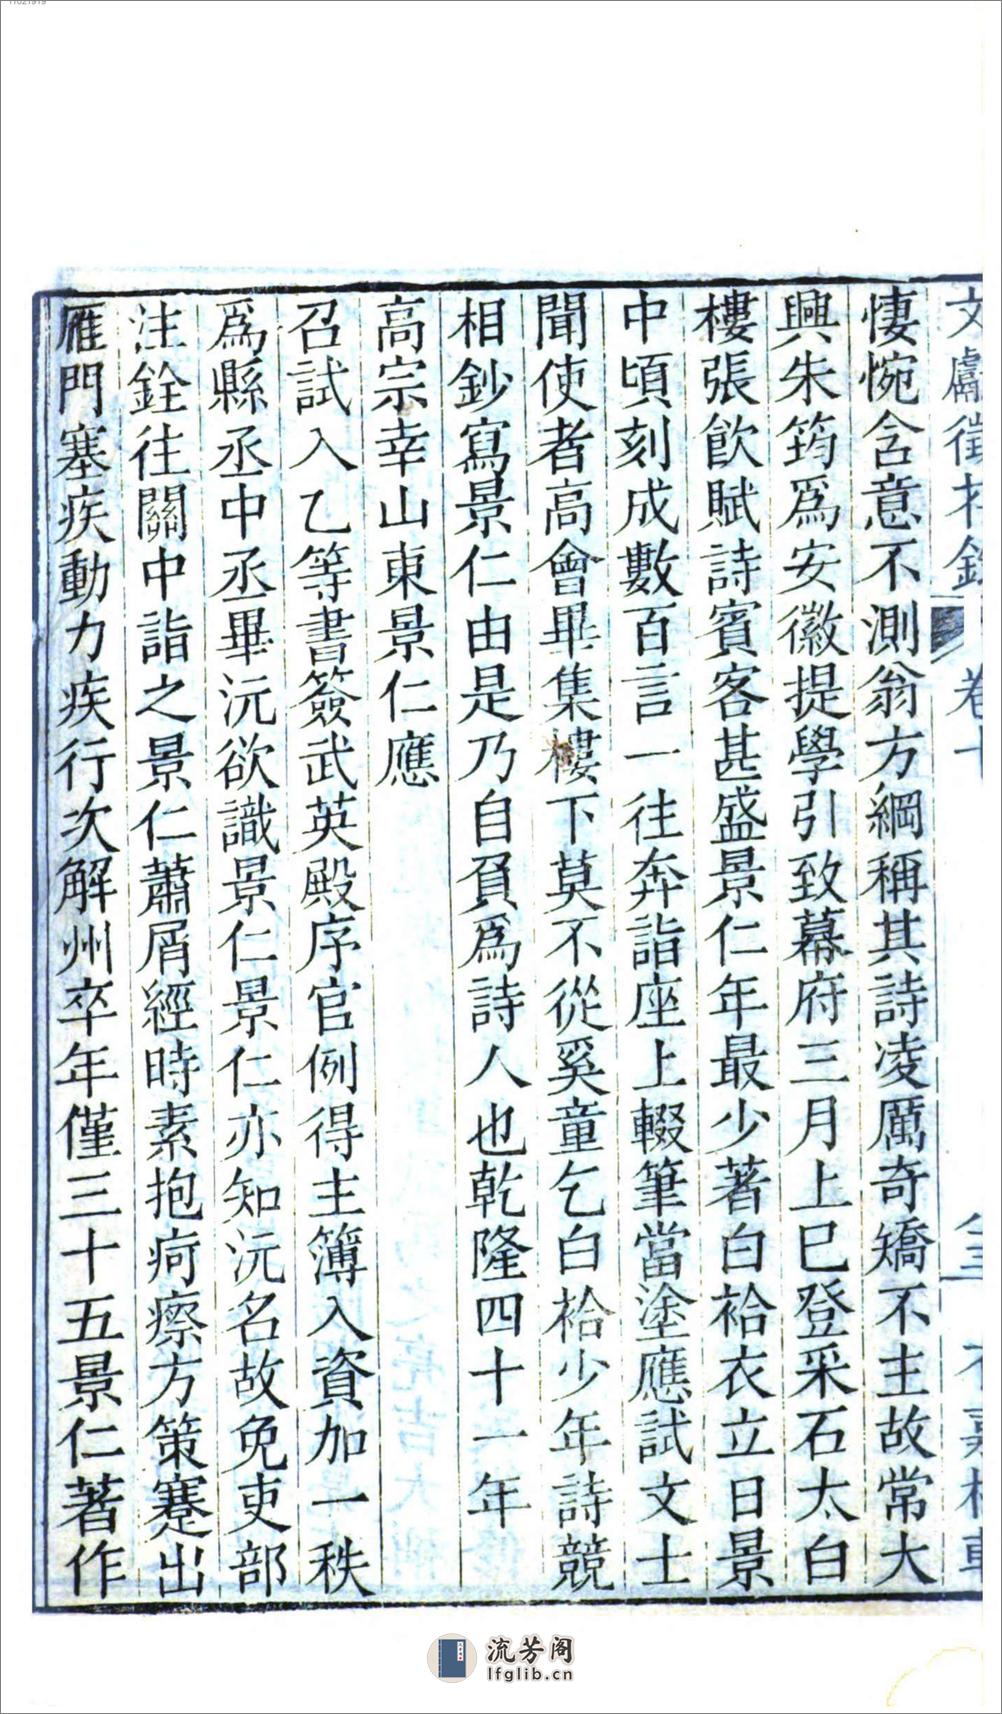 11021919
文獻徵存錄 卷十
悽惋含意不測翁方綱稱其詩凌厲奇矯不主故常大
興朱筠爲安徽提學引致幕府三月上巳登采石太白
樓張飲賦詩賓客甚盛景仁年最少著白袷衣立日景
中頃刻成數百言一往奔詣座上輟筆當塗應試文士
聞使者高會畢集樓下莫不從奚童乞白袷少年詩競
相鈔寫景仁由是乃自負爲詩人也乾隆四十一年
高宗幸山東景仁應
召試入乙等書簽武英殿序官例得主簿入資加一秩
爲縣丞中丞畢沅欲識景仁景仁亦知沅名故免吏部
注銓往關中詣之景仁蕭屑經時素抱疴瘵方策蹇出
雁門塞疾動力疾行次解州卒年僅三十五景仁著作
流芳阁
lfglib.cn